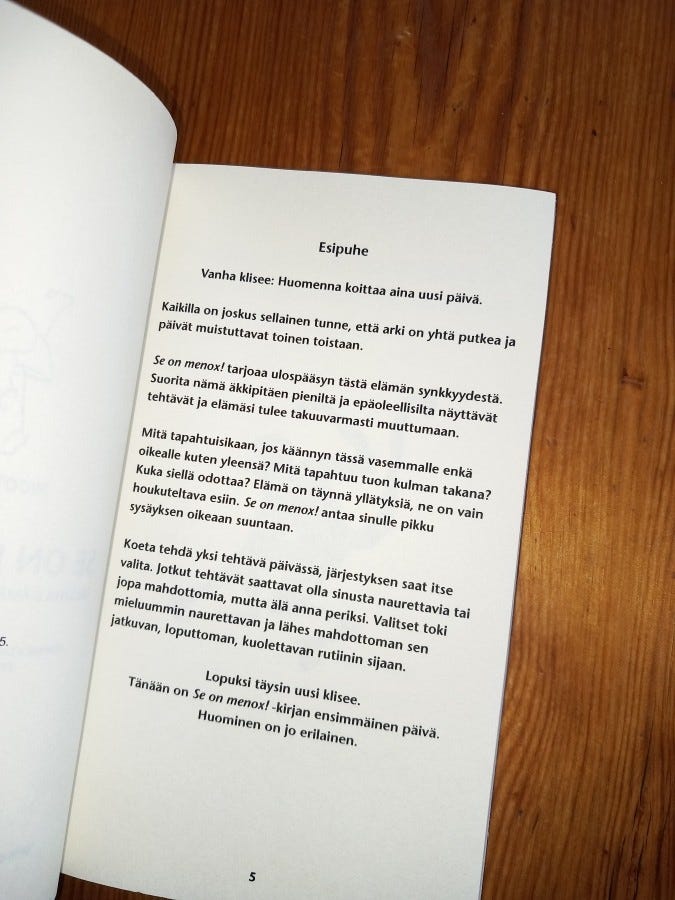 5.
Esipuhe
Vanha klisee: Huomenna koittaa aina uusi päivä.
Kaikilla on joskus sellainen tunne, että arki on yhtä putkea ja
päivät muistuttavat toinen toistaan.
Se on menox! tarjoaa ulospääsyn tästä elämän synkkyydestä.
Suorita nämä äkkipitäen pieniltä ja epäoleellisilta näyttävät
tehtävät ja elämäsi tulee takuuvarmasti muuttumaan.
Mitä tapahtuisikaan, jos käännyn tässä vasemmalle enkä
oikealle kuten yleensä? Mitä tapahtuu tuon kulman takana?
Kuka siellä odottaa? Elämä on täynnä yllätyksiä, ne on vain
houkuteltava esiin. Se on menox! antaa sinulle pikku
sysäyksen oikeaan suuntaan.
Koeta tehdä yksi tehtävä päivässä, järjestyksen saat itse
valita. Jotkut tehtävät saattavat olla sinusta naurettavia tai
jopa mahdottomia, mutta älä anna periksi. Valitset toki
mieluummin naurettavan ja lähes mahdottoman sen
jatkuvan, loputtoman, kuolettavan rutiinin sijaan.
Lopuksi täysin uusi klisee.
Tänään on Se on menox! -kirjan ensimmäinen päivä.
Huominen on jo erilainen.
5